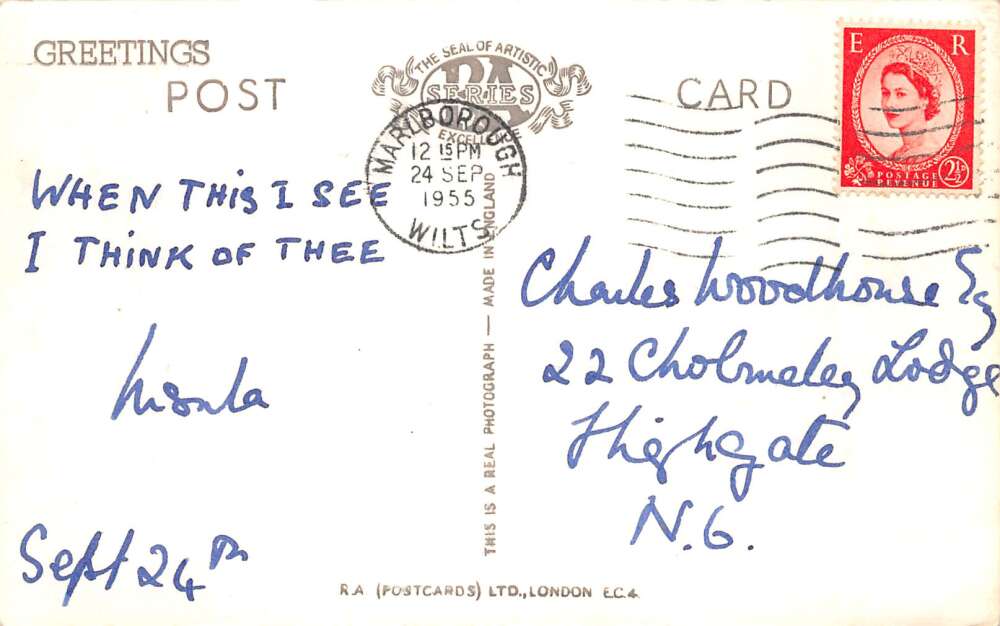 GREETINGS
POST CARD
THE SEAL OF ARTISTIC
RA
SERIES
EXCELLE
E R
POSTAGE
REVENUE
2½D
MARLBOROUGH
12 15 PM
24 SEP
1955
WILTS
WHEN THIS I SEE
I THINK OF THEE
Sept 24th
THIS IS A REAL PHOTOGRAPH — MADE IN ENGLAND
Charles Woodhouse Esq
22 Cholmeley Lodge
Highgate
N.6.
R.A (POSTCARDS) LTD., LONDON E.C.4.